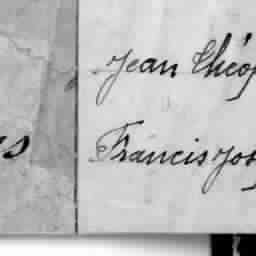 Jean Théop
es
Francis Jos